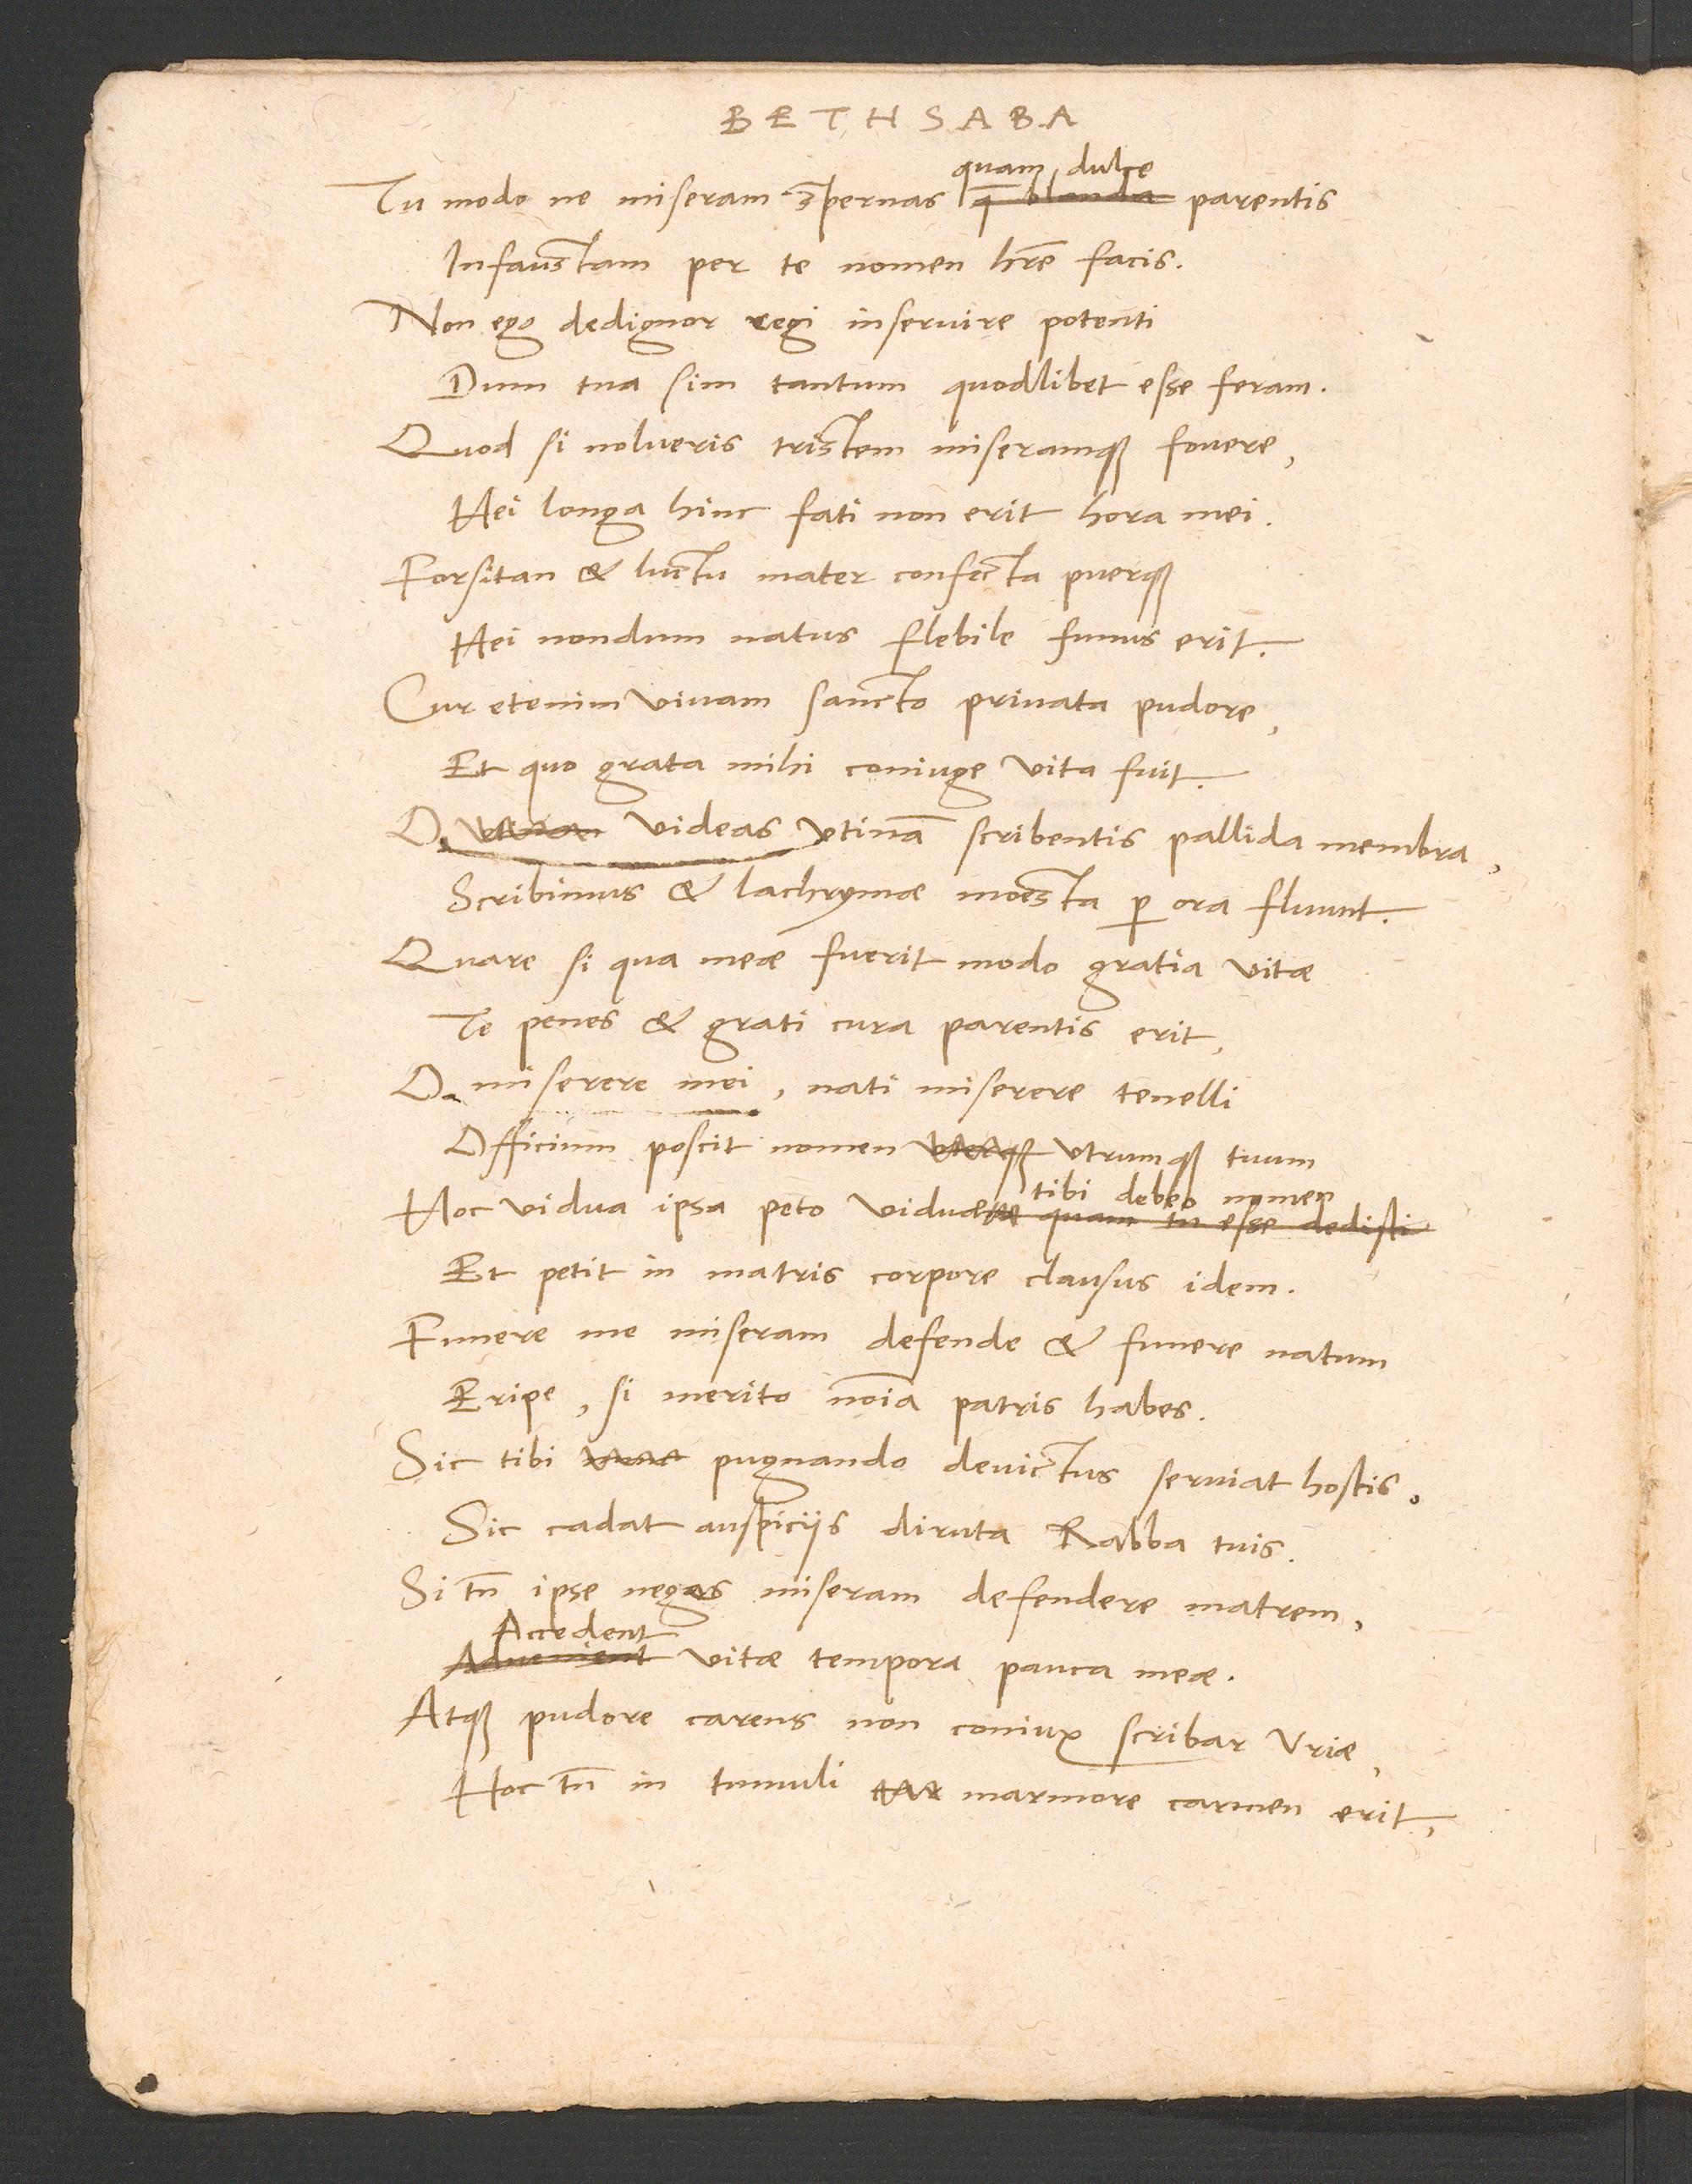 BETHSABA
quam dulce
Tu modo ne miseram spernas q̄ blanda parentis
Infaustam per te nomen hr̃e facis.
Non ego dedignor regi inseruire potenti
Dum tua sim tantum quodlibet esse feram.
Quod si nolueris tristem miseramqꝫ fouere,
Hei longa hinc fati non erit hora mei.
Forsitan & luctu mater confecta puerqꝫ
Hei nondum natus flebile funus erit.
Cur etenim viuam sancto priuata pudore,
Et quo grata mihi coniuge vita fuit.
O utinam videas vtinã scribentis pallida membra,
Scribimus & lachrymæ moesta ꝑ ora fluunt.
Quare si qua meæ fuerit modo gratia vitæ
Te penes & grati cura parentis erit,
O miserere mei, nati miserere tenelli
Officium poscit nomen vterqꝫ vtrumqꝫ tuum
tibi debeo nomen
Hoc vidua ipsa peto viduæ quam tu esse dedisti
Et petit in matris corpore clausus idem.
Funere me miseram defende & funere natum
Eripe, si merito nõia patris habes.
Sic tibi pugnando deuictus seruiat hostis.
Sic cadat auspiciis diruta Rabba tuis.
Si tñ ipse negas miseram defendere matrem,
Accedent
Aduenient vitæ tempora pauca meæ.
Atqꝫ pudore carens non coniux scribar Vriæ,
Hoc tñ in tumuli mar marmore carmen erit,